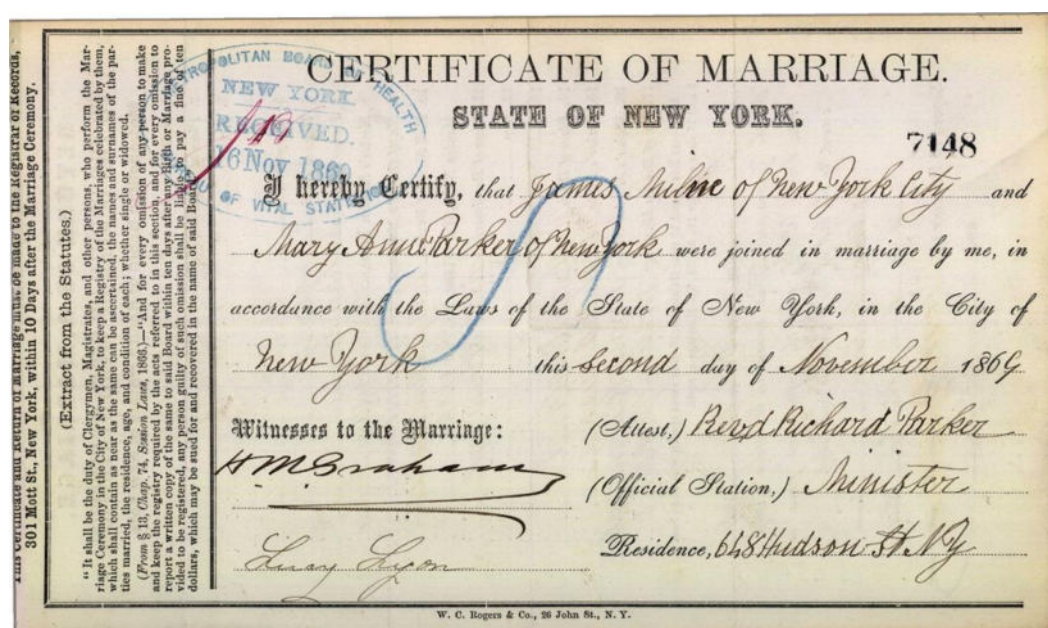 This Certificate and Return of Marriage must be made to the Registrar of Records,
301 Mott St., New York, within 10 Days after the Marriage Ceremony.
(Extract from the Statutes.)
"It shall be the duty of Clergymen, Magistrates, and other persons, who perform the Mar-
riage Ceremony in the City of New York, to keep a Registry of the Marriages celebrated by them,
which shall contain as near as the same can be ascertained, the names and surnames of the par-
ties married, the residence, age, and condition of each; whether single or widowed.
(From § 13, Chap. 74, Session Laws, 1866.)—"And for every omission of any person to make
and keep the registry required by the acts referred to in this section, and for every omission to
report a written copy of the same to said Board within ten days after any Birth or Marriage pro-
vided to be registered, any person guilty of such omission shall be liable to pay a fine of ten
dollars, which may be sued for and recovered in the name of said Board."
METROPOLITAN BOARD OF HEALTH
NEW YORK
RECEIVED.
16 Nov 1869
BUREAU OF VITAL STATISTICS
CERTIFICATE OF MARRIAGE.
STATE OF NEW YORK.
7148
I hereby Certify, that James Milne of New York City and
Mary Ann Parker of New York were joined in marriage by me, in
accordance with the Laws of the State of New York, in the City of
New York this second day of November 1869
Witnesses to the Marriage:
(Attest,) Revd Richard Parker
H M Graham
(Official Station,) Minister
Residence, 648 Hudson St N Y
Lucy Lyon
W. C. Rogers & Co., 26 John St., N. Y.